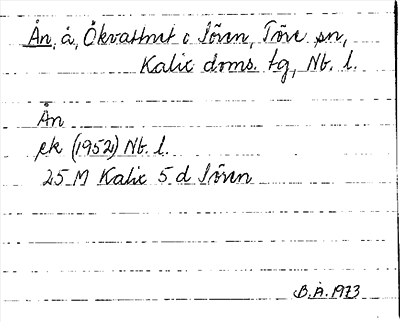 Ån, å, Ökvattnet o Sören, Töre sn,
Kalix doms. tg, Nb. l.
Ån
ek (1952) Nb. l.
25 M Kalix 5 d Sören
B.Å. 1973